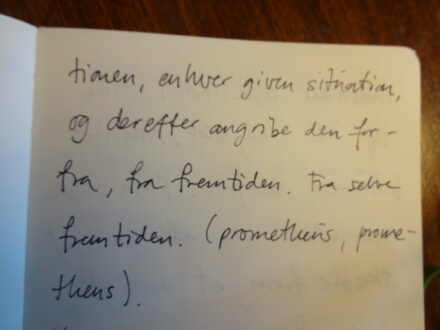 tionen, enhver given situation,
og derefter angribe den for-
fra, fra fremtiden. Fra selve
fremtiden. (prometheus, prome-
theus).